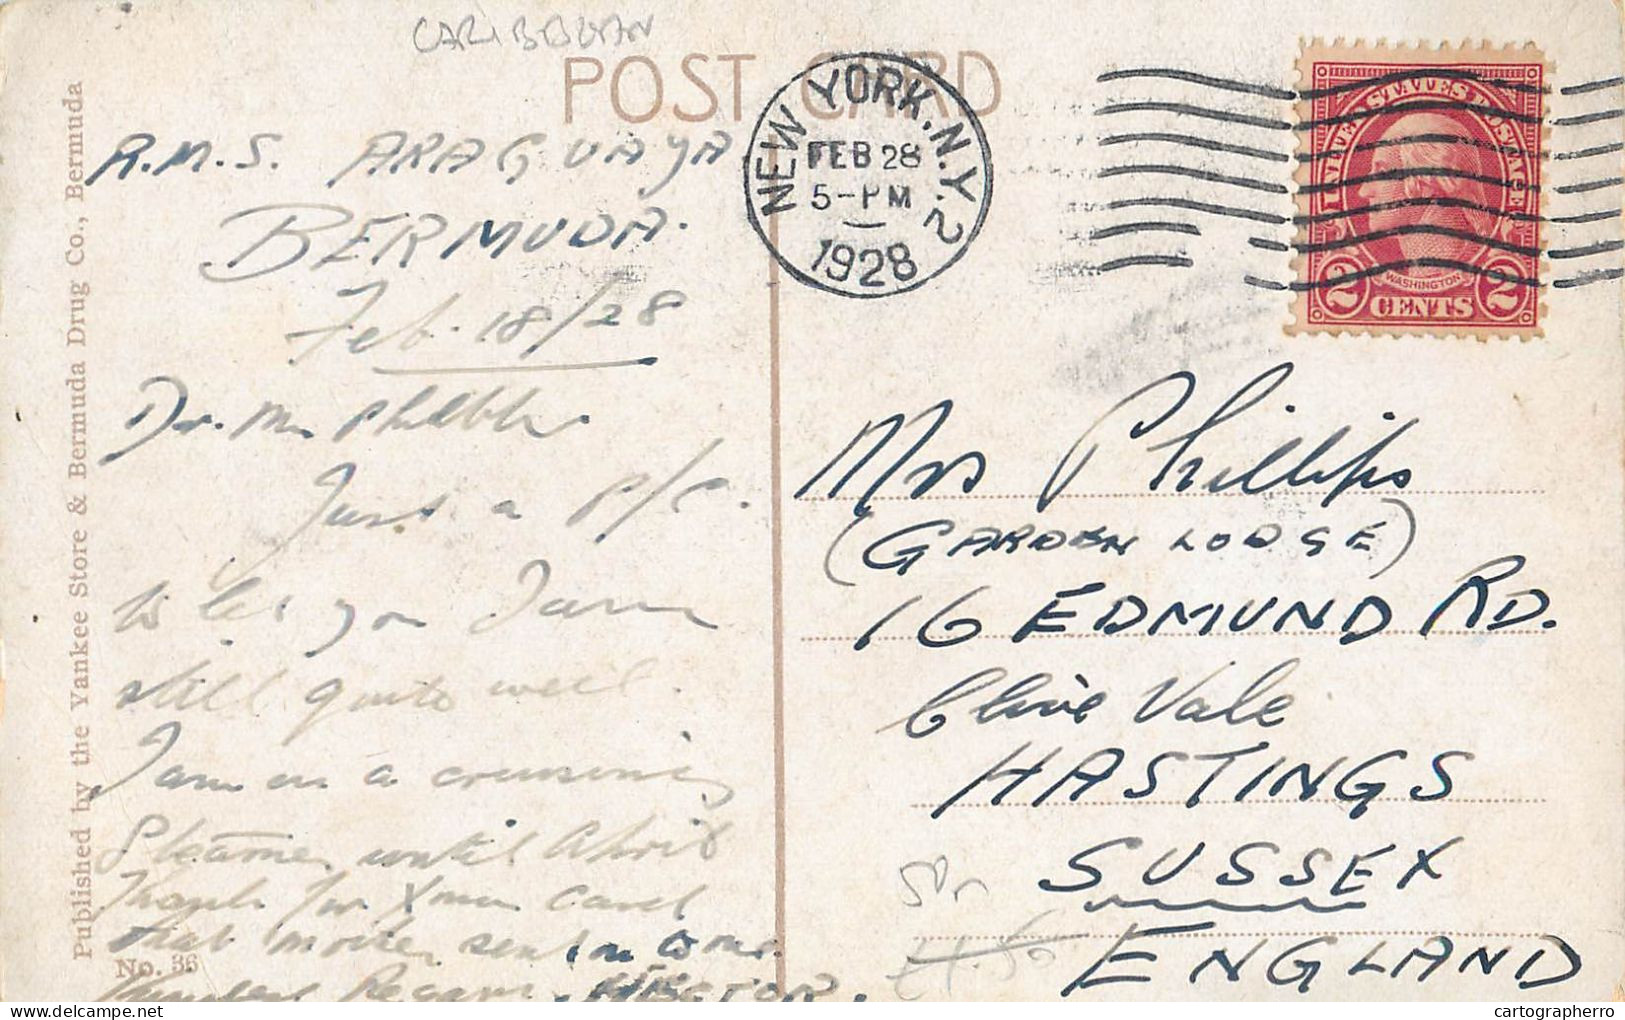 CARIBBEAN
POST CARD
NEW YORK, N.Y. 2
FEB 28
5-PM
1928
UNITED STATES POSTAGE
WASHINGTON
2 CENTS 2
Published by the Yankee Store & Bermuda Drug Co., Bermuda
No. 36
R.M.S. ARAGUAYA
BERMUDA.
Feb. 18/28
Dr. Mrs
Just a P/C.
to let you I am
still quite well.
I am on a cruising
Steamer until April
Thanks for Xmas Card
that mother sent on to me.
Kindest Regards, HECTOR.
Mrs Phillips
(GARDEN LODGE)
16 EDMUND RD.
Clive Vale
HASTINGS
SUSSEX
ENGLAND
cartographerro